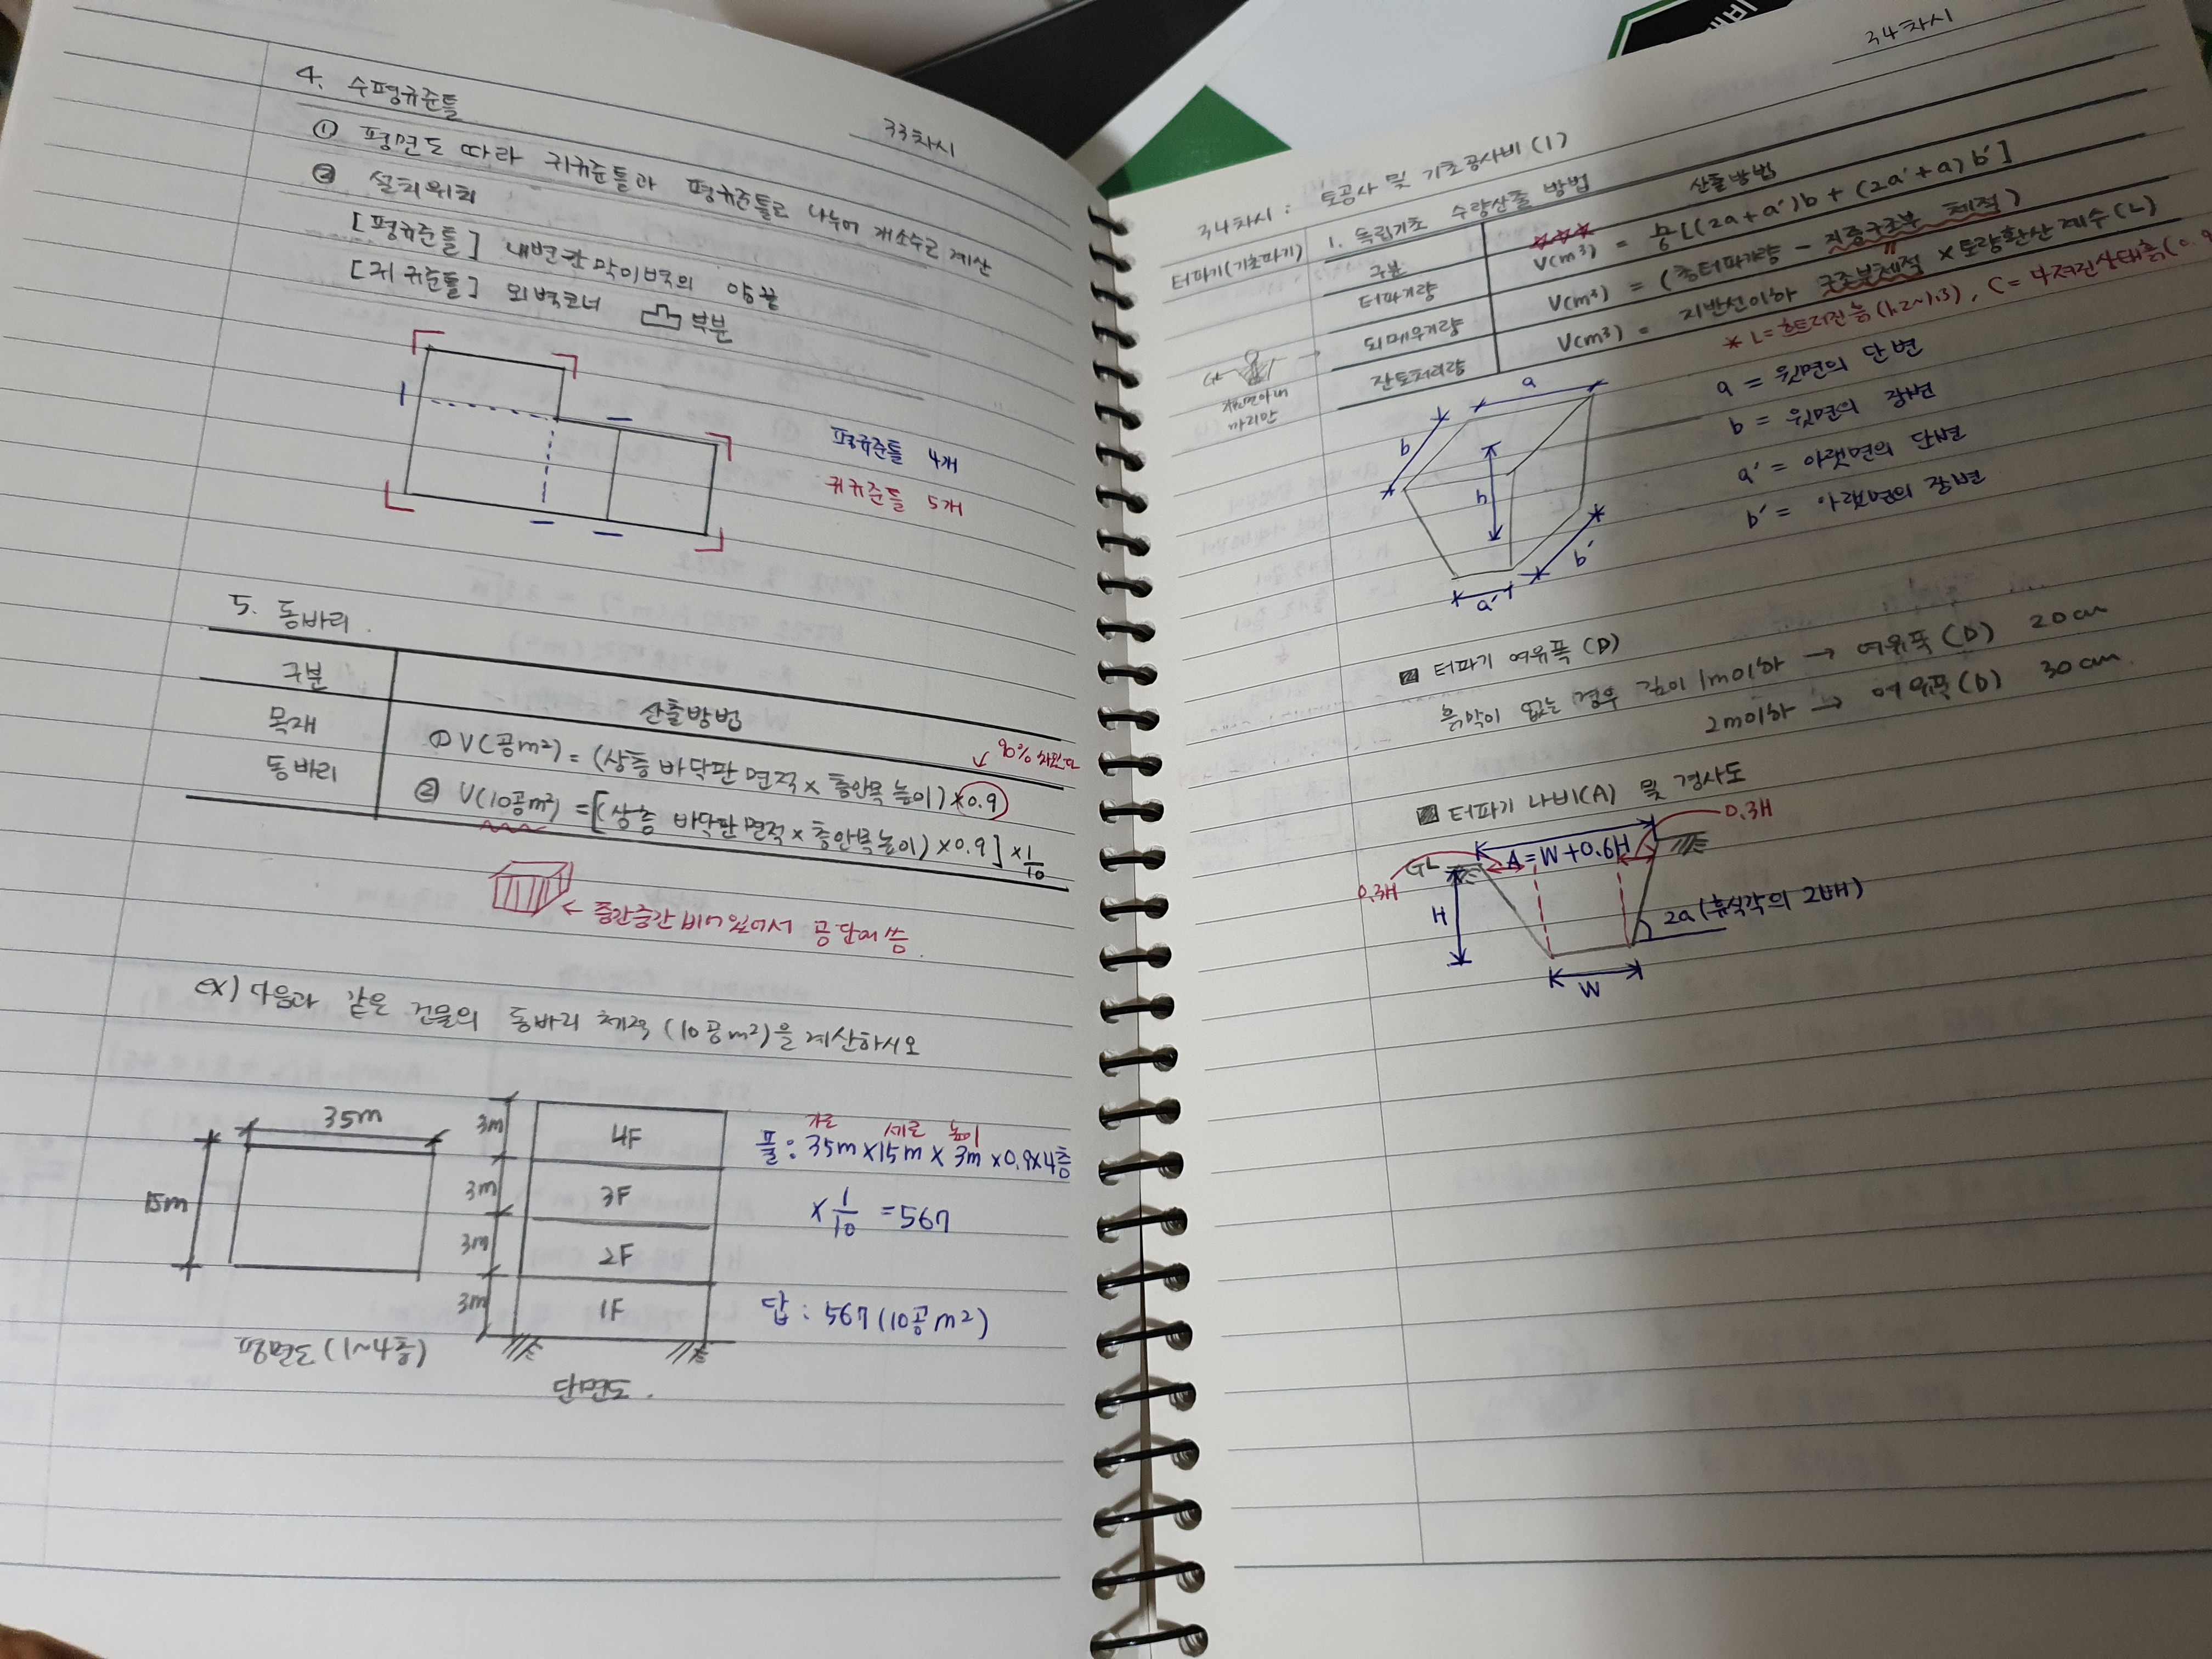 33차시
4. 수평규준틀
① 평면도 따라 귀규준틀과 평규준틀로 나누어 개소수로 계산
② 설치위치
[평규준틀] 내변칸막이벽의 양끝
[귀규준틀] 외벽코너 부분
평규준틀 4개
귀규준틀 5개
5. 동바리.
구분
산출방법
목재
동바리
① V(공m²) = (상층 바닥판 면적 × 층안목 높이) × 0.9
② V(10공m²) = [(상층 바닥판 면적 × 층안목 높이) × 0.9] × 1/10
← 중간중간 비어있어서 공단에 씀.
ex) 다음과 같은 건물의 동바리 체적 (10공m²)을 계산하시오
35m
15m
평면도 (1~4층)
3m 4F
3m 3F
3m 2F
3m 1F
단면도.
가로 세로 높이
풀: 35m × 15m × 3m × 0.9 × 4층
× 1/10 = 567
답: 567 (10공m²)
34차시
34차시: 토공사 및 기초공사비 (1)
터파기(기초파기)
1. 독립기초 수량산출 방법
구분
산출방법
터파기량
V(m³) = h/6 [(2a + a')b + (2a' + a) b']
되메우기량
V(m³) = (총터파기량 - 지중구조부 체적)
잔토처리량
V(m³) = 지반선이하 구조부체적 × 토량환산계수(L)
* L = 흐트러진 흙 (1.2~1.3), C = 다져진상태흙(0.9
GL
a = 윗면의 단변
b = 윗면의 장변
a' = 아랫면의 단변
b' = 아랫면의 장변
a
b
h
b'
a'
터파기 여유폭 (D)
흙막이 없는 경우 깊이 1m이하 → 여유폭(D) 20cm
2m이하 → 여유폭(D) 30cm
터파기 너비(A) 및 경사도
0.3H
A = W + 0.6H
GL
0.3H
H
2a (휴식각의 2배)
W